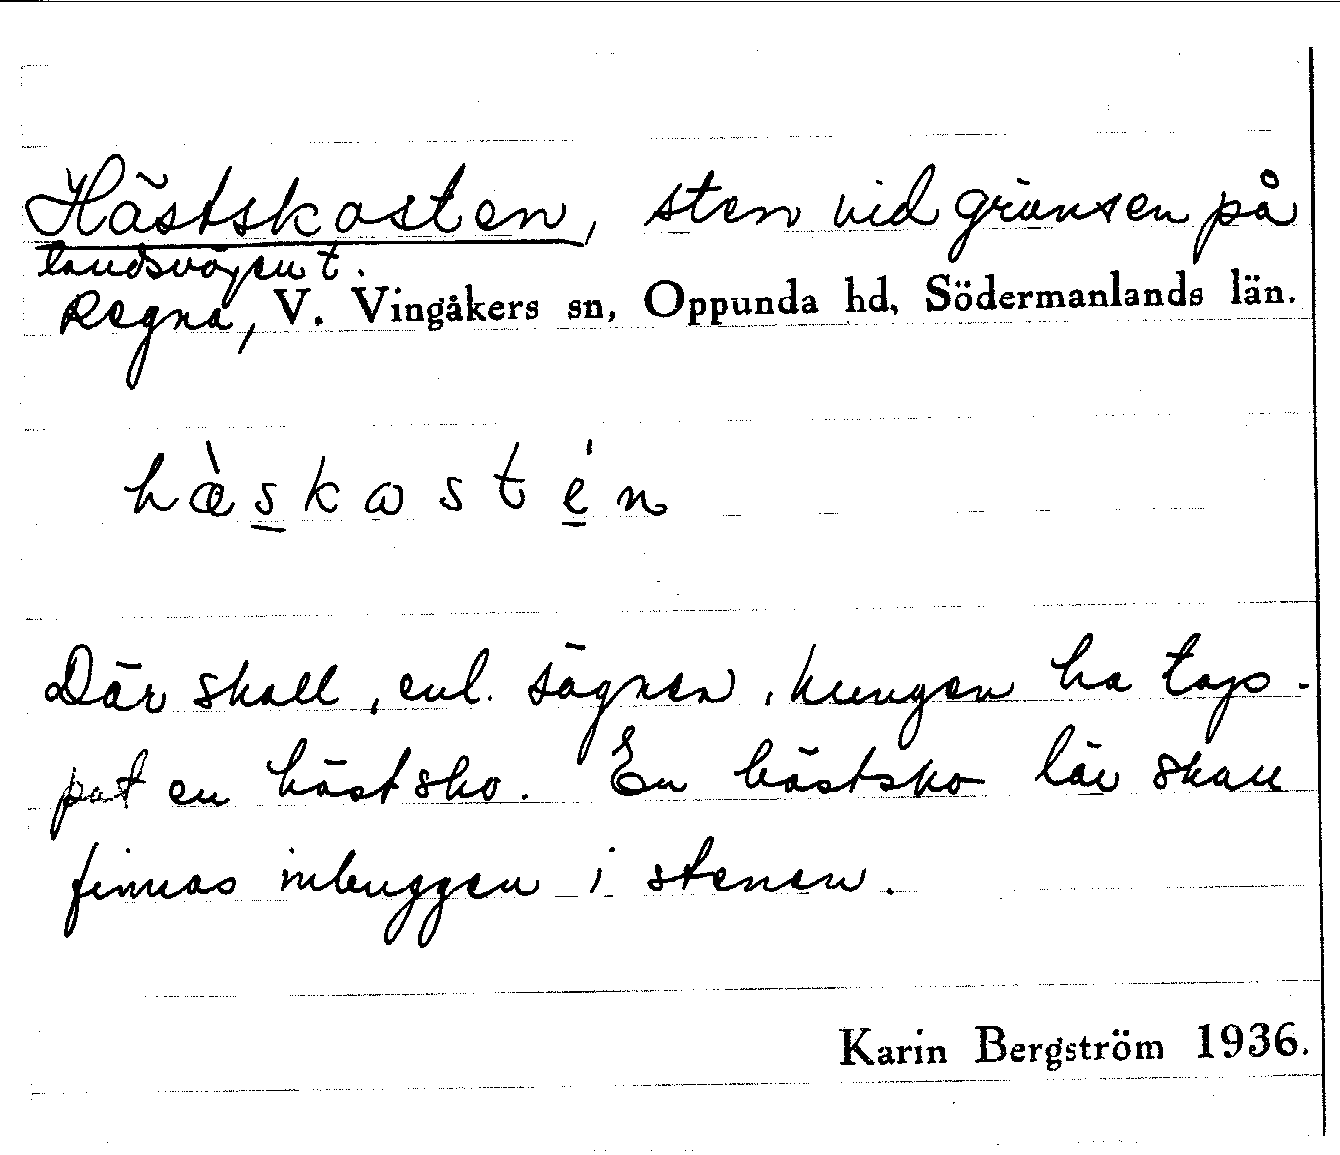 Hästskosten, sten vid gränsen på
landsvägen t.
Regna, V. Vingåkers sn, Oppunda hd, Södermanlands län.
hæ̀skostén
Där skall, enl. sägnen, kungen ha tap-
pat en hästsko. En hästsko lär skall
finnas inbuggen i stenen.
Karin Bergström 1936.